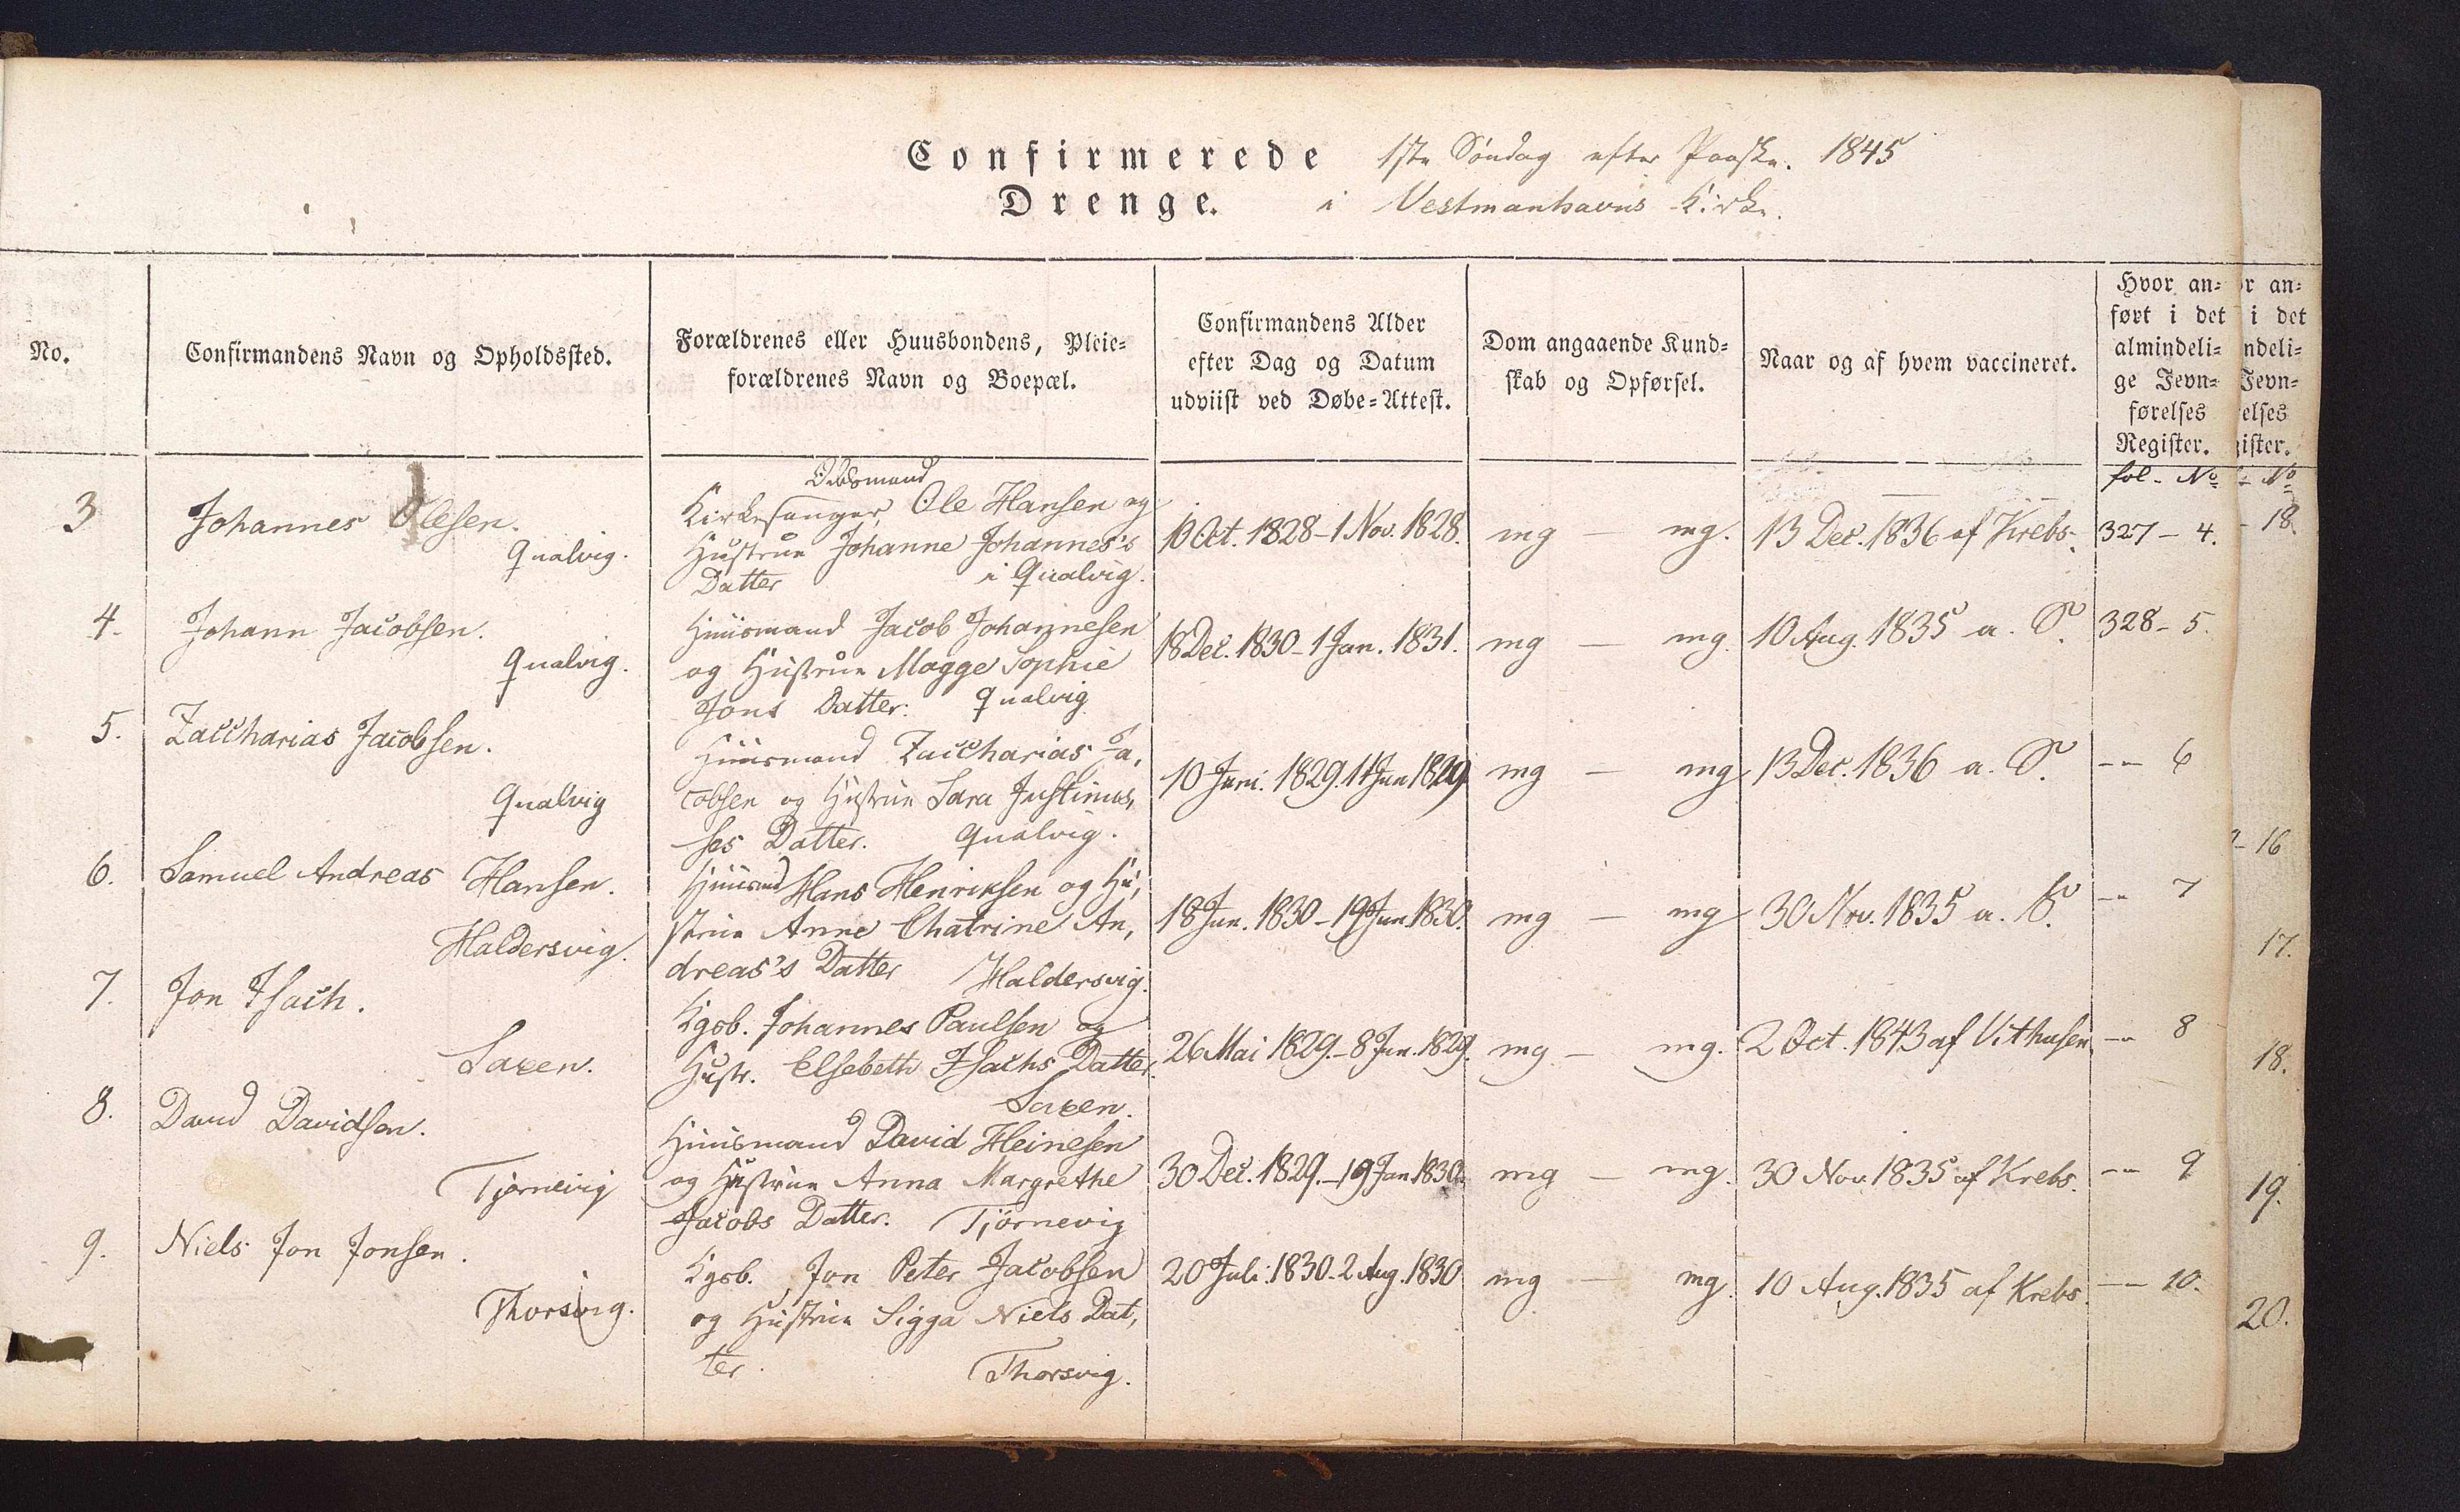 Confirmerede 1ste Søndag efter Paaske. 1845
Drenge. i Vestmanhavns Kirke.
No.
Confirmandens Navn og Opholdssted.
Forældrenes eller Huusbondens, Pleie-
forældrenes Navn og Boepæl.
Confirmandens Alder
efter Dag og Datum
udviist ved Døbe-Attest.
Dom angaaende Kund-
skab og Opførsel.
Naar og af hvem vaccineret.
Hvor an-
ført i det
almindeli-
ge Jevn-
førelses
Register.
fol - No
3
Johannes Olesen.
Qualvig.
Kirkesanger, Ole Hansen og
Hustrue Johanne Johannes's
Datter i Qualvig.
Oct. 1828 - 1 Nov. 1828.
mg — mg.
13 Dec. 1836 af Krebs.
327 - 4.
4.
Johann Jacobsen.
Qualvig.
Huusmand Jacob Johannesen
og Hustrue Magge Sophie
Jons Datter. Qualvig
18 Dec. 1830 - 1 Jan. 1831.
mg — mg.
10 Aug. 1835 a. S.
328 - 5.
5.
Zaccharias Jacobsen.
Qualvig
Huusmand Zaccharias Ja,
cobsen og Hustrue Sara Justinus,
ses Datter. Qualvig.
10 Juni. 1829. 14 Jun 1829
mg — mg
13 Dec. 1836 a. S.
-"- 6
6.
Samuel Andreas Hansen.
Haldersvig.
Huusmd Hans Henriksen og Hu,
strue Anne Chatrine An,
dreas's Datter Haldersvig.
18 Jun. 1830 - 19 Jun 1830.
mg — mg
30 Nov. 1835 a. S.
-"- 7
7.
Jon Isach.
Saxen.
Kgsb. Johannes Paulsen og
Hustr. Elsebeth Isachs Datter.
Saxen.
26 Mai 1829. - 8 Jun. 1829.
mg — mg.
2 Oct. 1843 af Vithusen
-"- 8
8.
David Davidsen.
Tjørnevig
Huusmand David Heinesen
og Hustrue Anna Margrethe
Jacobs Datter. Tjørnevig
30 Dec. 1829. - 19 Jan 1830.
mg — mg.
30 Nov 1835 af Krebs.
-"- 9
9.
Niels Jon Jonsen.
Thorsvig.
Kgsb. Jon Peter Jacobsen
og Hustrue Sigga Niels Dat,
ter. Thorsvig.
20 Juli. 1830 - 2 Aug. 1830
mg — mg.
10 Aug. 1835 af Krebs.
-"- 10.
r an-
i det
ndeli-
Jevn-
elses
ister.
- No
- 18.
- 16
17.
18.
19.
20.